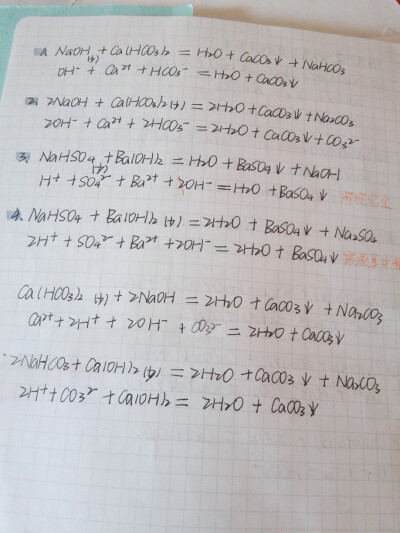 1. NaOH + Ca(HCO3)2 = H2O + CaCO3↓ + NaHCO3
(少)
OH⁻ + Ca²⁺ + HCO3⁻ = H2O + CaCO3↓
2. 2NaOH + Ca(HCO3)2(少) = 2H2O + CaCO3↓ + Na2CO3
2OH⁻ + Ca²⁺ + 2HCO3⁻ = 2H2O + CaCO3↓ + CO3²⁻
3. NaHSO4 + Ba(OH)2 = H2O + BaSO4↓ + NaOH
(少)
H⁺ + SO4²⁻ + Ba²⁺ + 2OH⁻ = H2O + BaSO4↓
4. NaHSO4 + Ba(OH)2(少) = 2H2O + BaSO4↓ + Na2SO4
2H⁺ + SO4²⁻ + Ba²⁺ + 2OH⁻ = 2H2O + BaSO4↓
Ca(HCO3)2(少) + 2NaOH = 2H2O + CaCO3↓ + Na2CO3
Ca²⁺ + 2H⁺ + 2OH⁻ + CO3²⁻ = 2H2O + CaCO3↓
2NaHCO3 + Ca(OH)2(少) = 2H2O + CaCO3↓ + Na2CO3
2H⁺ + CO3²⁻ + Ca(OH)2 = 2H2O + CaCO3↓